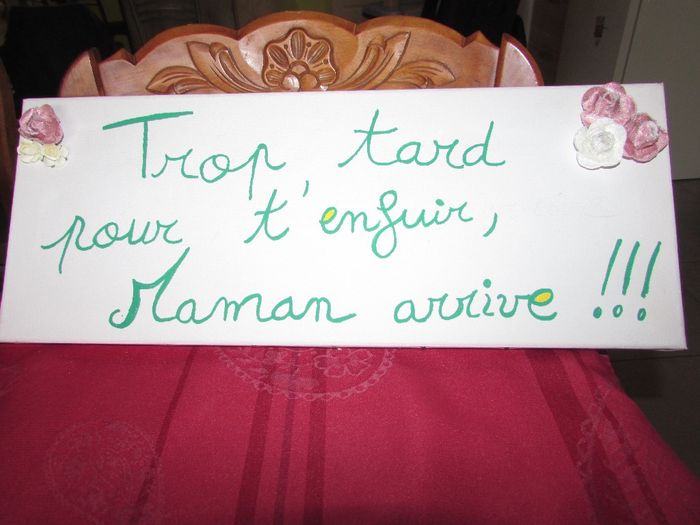 Trop tard
pour t'enfuir,
Maman arrive !!!